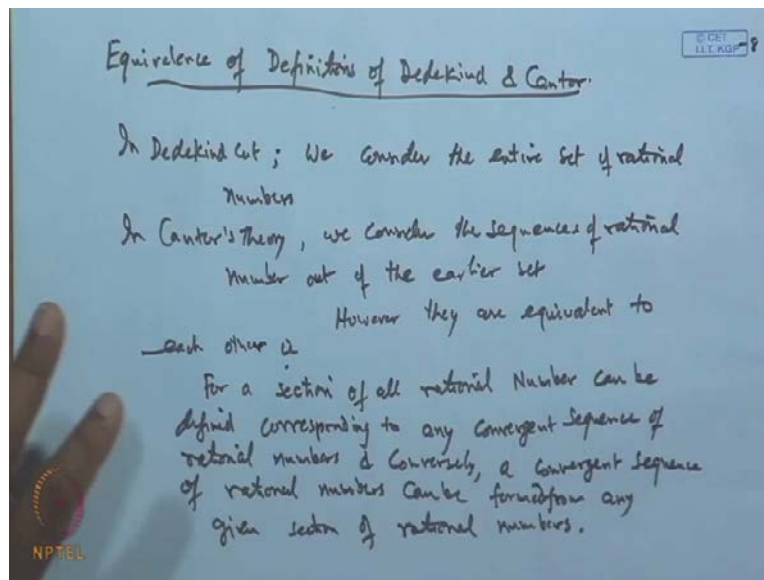 © CET
I.I.T. KGP
-8
Equivalence of Definitions of Dedekind & Cantor.
In Dedekind cut ; We consider the entire set of rational
numbers
In Cantor's Theory, we consider the sequences of rational
number out of the earlier set
However they are equivalent to
each other
For a section of all rational Number can be
defined corresponding to any convergent sequence of
rational numbers & Conversely, a convergent sequence
of rational numbers can be formed from any
given section of rational numbers.
NPTEL